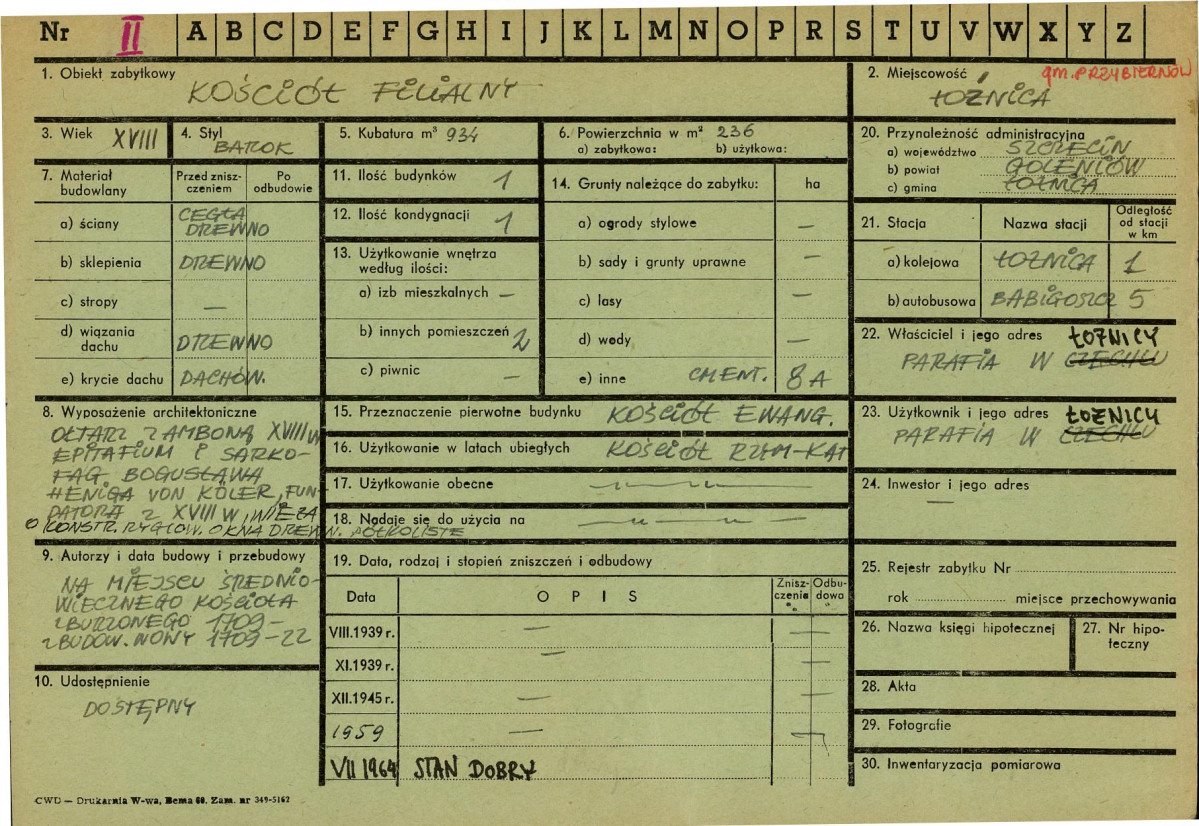 Nr II A B C D E F G H I J K L M N O P R S T U V W X Y Z
1. Obiekt zabytkowy
KOŚCIÓŁ FILIALNY
2. Miejscowość gm. PRZYBIERNÓW
ŁOŹNICA
3. Wiek XVIII
4. Styl
BAROK
5. Kubatura m³ 934
6. Powierzchnia w m² 236
a) zabytkowa: b) użytkowa:
20. Przynależność administracyjna
a) województwo SZCZECIN
b) powiat GOLENIÓW
c) gmina ŁOŹNICA
7. Materiał budowlany
Przed zniszczeniem
Po odbudowie
a) ściany CEGŁA
DREWNO
b) sklepienia DREWNO
c) stropy —
d) wiązania dachu DREWNO
e) krycie dachu DACHÓW.
11. Ilość budynków 1
12. Ilość kondygnacji 1
13. Użytkowanie wnętrza
według ilości:
a) izb mieszkalnych —
b) innych pomieszczeń 2
c) piwnic —
14. Grunty należące do zabytku: ha
a) ogrody stylowe —
b) sady i grunty uprawne —
c) lasy —
d) wody —
e) inne CMENT. 8 A
21. Stacja Nazwa stacji Odległość od stacji w km
a) kolejowa ŁOŹNICA 1
b) autobusowa BABIGOSZCZ 5
22. Właściciel i jego adres ŁOŹNICY
PARAFIA W CZECHLU
8. Wyposażenie architektoniczne
OŁTARZ Z AMBONĄ XVIII W
EPITAFIUM I SARKO-
FAG BOGUSŁAWA
HENIGA VON KÖLER, FUN-
DATORA Z XVIII W, WIEŻA
O KONSTR. RYGLOW. OKNA DREWN. PÓŁKOLISTE
15. Przeznaczenie pierwotne budynku KOŚCIÓŁ EWANG.
16. Użytkowanie w latach ubiegłych KOŚCIÓŁ RZYM-KAT
17. Użytkowanie obecne
18. Nadaje się do użycia na
23. Użytkownik i jego adres ŁOŹNICY
PARAFIA W CZECHLU
24. Inwestor i jego adres
—
9. Autorzy i data budowy i przebudowy
NA MIEJSCU ŚREDNIO-
WIECZNEGO KOŚCIOŁA
ZBURZONEGO 1709-
ZBUDOW. NOWY 1709-22
10. Udostępnienie
DOSTĘPNY
19. Data, rodzaj i stopień zniszczeń i odbudowy
Data OPIS Zniszczenia % Odbudowa %
VIII.1939 r. — —
XI.1939 r. — —
XII.1945 r. — —
1959 — —
VII 1964 STAN DOBRY
25. Rejestr zabytku Nr
rok miejsce przechowywania
26. Nazwa księgi hipotecznej
27. Nr hipoteczny
28. Akta
29. Fotografie
30. Inwentaryzacja pomiarowa
CWD — Drukarnia W-wa, Bema 60. Zam. nr 349-5162